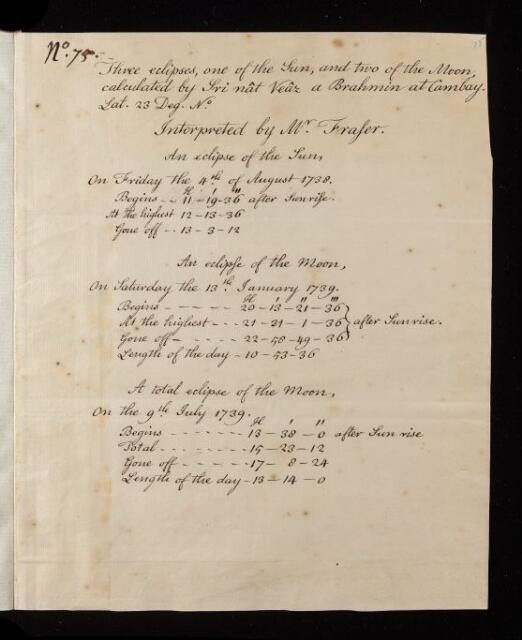 No. 75.
Three eclipses, one of the Sun, and two of the Moon,
calculated by Sri nât Veâz a Brahmin at Cambay.
Lat. 23 Deg. No
Interpreted by Mr. Fraser.
An eclipse of the Sun,
On Friday the 4th. of August 1738.
H ' "
Begins - - 11 - 19 - 36 after Sunrise.
At the highest 12 - 13 - 36
Gone off - - 13 - 3 - 12
An eclipse of the Moon,
On Saturday the 13th. January 1739.
H ' " '"
Begins - - - - - 20 - 13 - 21 - 36
At the highest - - - 21 - 21 - 1 - 36 } after Sunrise.
Gone off - - - - - 22 - 58 - 49 - 36
Length of the day - 10 - 53 - 36
A total eclipse of the Moon,
On the 9th July 1739.
H ' "
Begins - - - - - - 13 - 38 - 0 after Sun rise
Total - - - - - - 15 - 23 - 12
Gone off - - - - - 17 - 8 - 24
Length of the day - 13 - 14 - 0